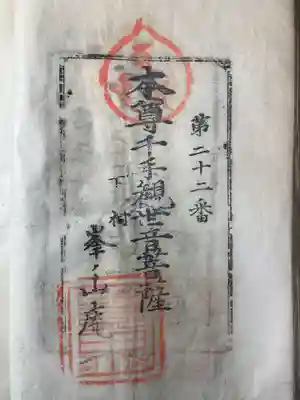 第二十二番
本尊千手観世音菩薩
下村
峯ノ山庵